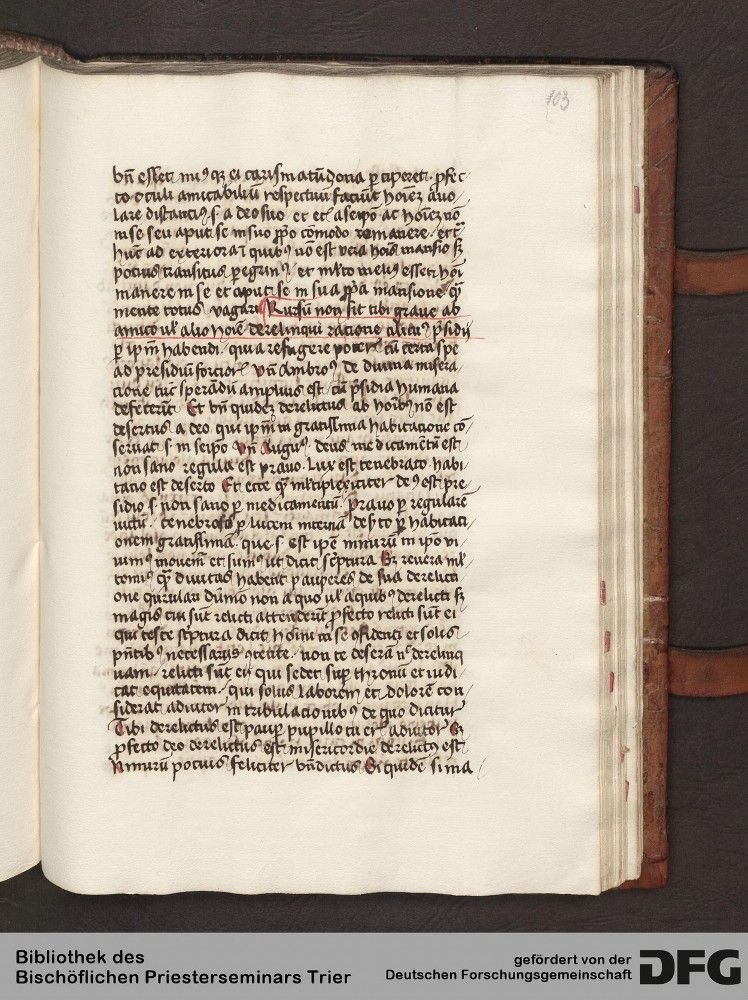 103
bñ esset
to oculi amicabiliū respectuū faciūt hoīez auo/
lare distanciꝰ .s. a deo suo et ecī a seipo ac hoīez no
ni se seu aput se in suo ꝓpo cōmodo remanere
hūc ad exteriora quibꝰ nō est vera hoīs mansio sꝫ
pocius transitus et mlto meliꝰ esset hoī
manere in se et aput se in sua ꝓpa mansione qm̄
mente totus vagari Rursū non sit tibi graue ab
amico ul' alio hoīe derelinqui racione p̄sidij
ꝑ ip̄m habendi. qui a refugere cū certa spe
ad presidiū forcior vn̄ Ambrosꝰ de diuina misera/
cione tūc sperandū ampliꝰ est cū p̄sidia humana
defecerīt Et bn̄ quidez derelictus ab hoībꝰ nō est
desertus a deo qui ip̄m in gratissima habitacione cō/
seruat .s. in seipo vn̄ Augus. deus medicamentū est
non sano regula est prauo. Lux est tenebrato habi
tatio est deserto Et ecce qm̄ mltipliciter deꝰ est pre/
sidio .s. non sano ꝑ medicamentū. prauo ꝑ regularē
tenebroso ꝑ lucem internā desto ꝑ habitaci/
onem gratissimā. que .s. est ip̄e in ip̄o vi/
uimꝰ mouemr̄ et sumꝰ ut dicit sc̄ptura Et reuera ml'
qm̄ diuitias habent pauperes de sua derelicti
one dūmō non a quo ul' a quibꝰ derelicti sꝫ
magis cui sūt relicti attenderīt ꝓfecto relicti sūt ei
qui teste sc̄ptura dicit hoīni in se et solis
necessarijs non te deserā nc̄ derelinq̄
uam. relicti sūt ei qui sedet suꝑ thronū et iudi
cat equitatem. qui solus laborem et dolorē con/
siderat adiutor in tribulacionibꝰ de quo dicitur
Tibi derelictus est pauꝑ pupillo tu eris adiutor Et
ꝓfecto deo derelictus est misericordie derelictꝰ est
Nimirū pocius feliciter bn̄dictus Si quidē si ma
Bibliothek des
Bischöflichen Priesterseminars Trier
gefördert von der
Deutschen Forschungsgemeinschaft
DFG